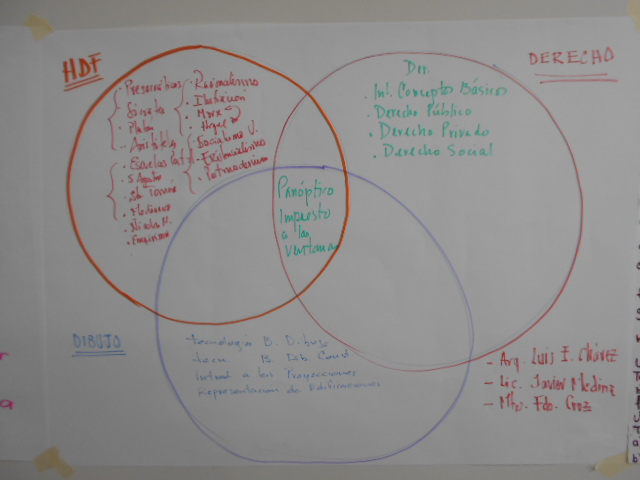 HDF
· Presocráticos
· Sócrates
· Platón
· Aristóteles
· Escuelas
· S. Agustín
· Sto Tomás
· Medioevo
· Nicolás M.
· Empirismo
· Racionalismo
· Ilustración
· Marx
· Hegel
· Socialismo U.
· Existencialismo
DERECHO
Der.
· Int. Conceptos Básicos
· Derecho Público
· Derecho Privado
· Derecho Social
Panóptico
Impuesto
a las
Ventanas
DIBUJO
- Tecnología B. Dibujo
B.
a las Proyecciones
Representación de Edificaciones
- Arq. Luis F. Chávez
- Lic. Javier Medina
- Mtro. Fdo. Cruz